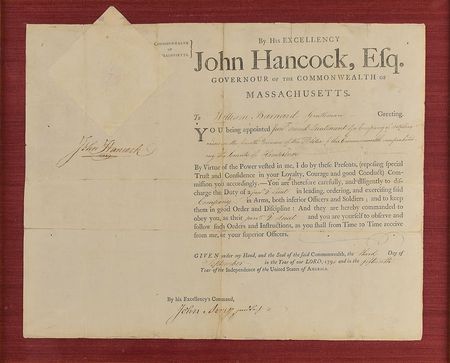 COMMONWEALTH
OF
MASSACHUSETTS.
By His EXCELLENCY
John Hancock, Esq.
GOVERNOUR OF THE COMMONWEALTH OF
MASSACHUSETTS.
To William Barnard Gentleman Greeting.
YOU being appointed Lieutenant of a Company
in the fourth Division of the Militia of this Commonwealth
County of Hampshire
By Virtue of the Power vested in me, I do by these Presents, (reposing special
Trust and Confidence in your Loyalty, Courage and good Conduct) Com-
mission you accordingly.—You are therefore carefully, and diligently to dis-
charge the Duty of a in leading, ordering, and exercising said
Company in Arms, both inferior Officers and Soldiers; and to keep
them in good Order and Discipline: And they are hereby commanded to
obey you, as their and you are yourself to observe and
follow such Orders and Instructions, as you shall from Time to Time receive
from me, or your superior Officers.
GIVEN under my Hand, and the Seal of the said Commonwealth, the third Day of
September in the Year of our LORD, 179 and in the fifteenth
Year of the Independence of the United States of America.
By his Excellency's Command,
John Avery
John Hancock